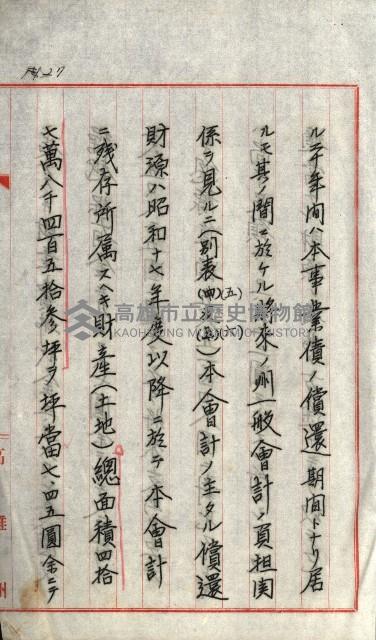 ル二十年間ハ本事業債ノ償還期間トナリ居
ルモ其ノ間ニ於ケル將來ノ州一般會計ノ負担関
係ヲ見ルニ(別表(五)(六))本會計ノ主タル償還
財源ハ昭和十七年度以降ニ於テ本會計
ニ残存所属スヘキ財產(土地)總面積四拾
七萬八千四百五拾參坪ヲ坪當七、四五圓余ニテ
高雄州
高雄市立歷史博物館
KAOHSIUNG MUSEUM OF HISTORY